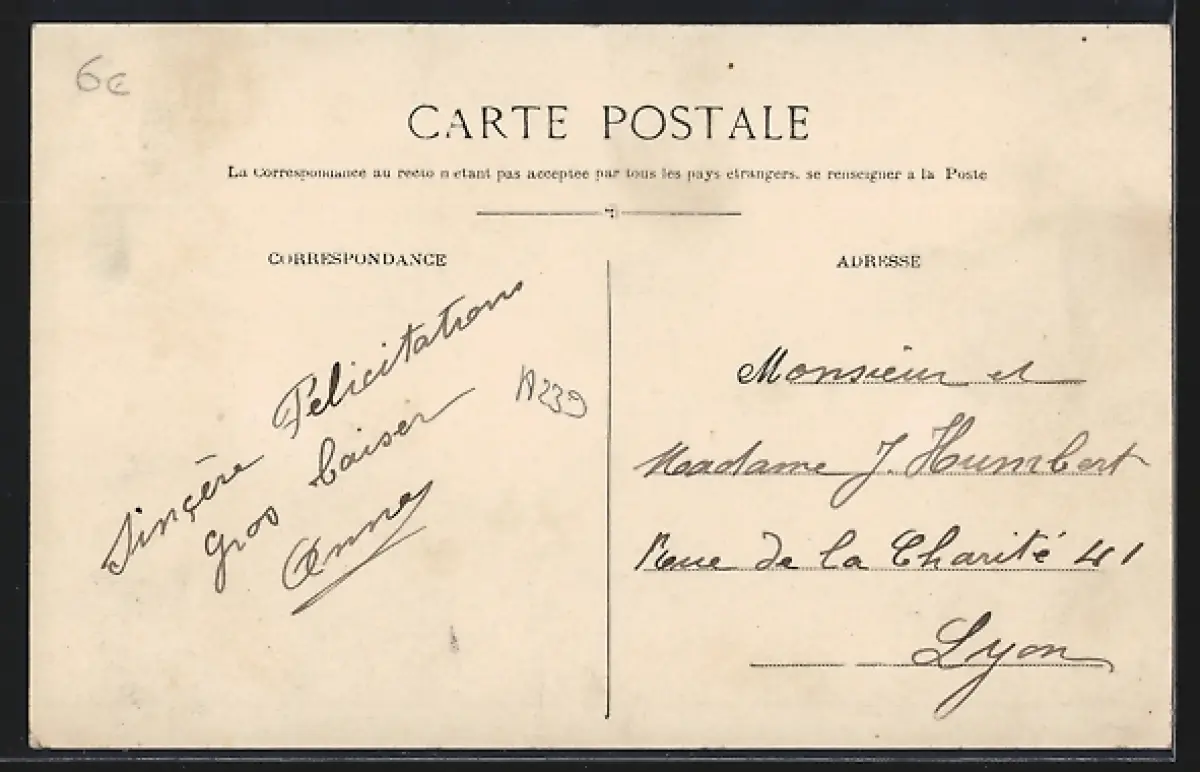 6€
CARTE POSTALE
La Correspondance au recto n'étant pas acceptée par tous les pays étrangers, se renseigner à la Poste
CORRESPONDANCE
ADRESSE
Sinçère Félicitations
gros baiser
Anna
A239
Monsieur et
Madame J. Humbert
Rue de la Charité 41
Lyon